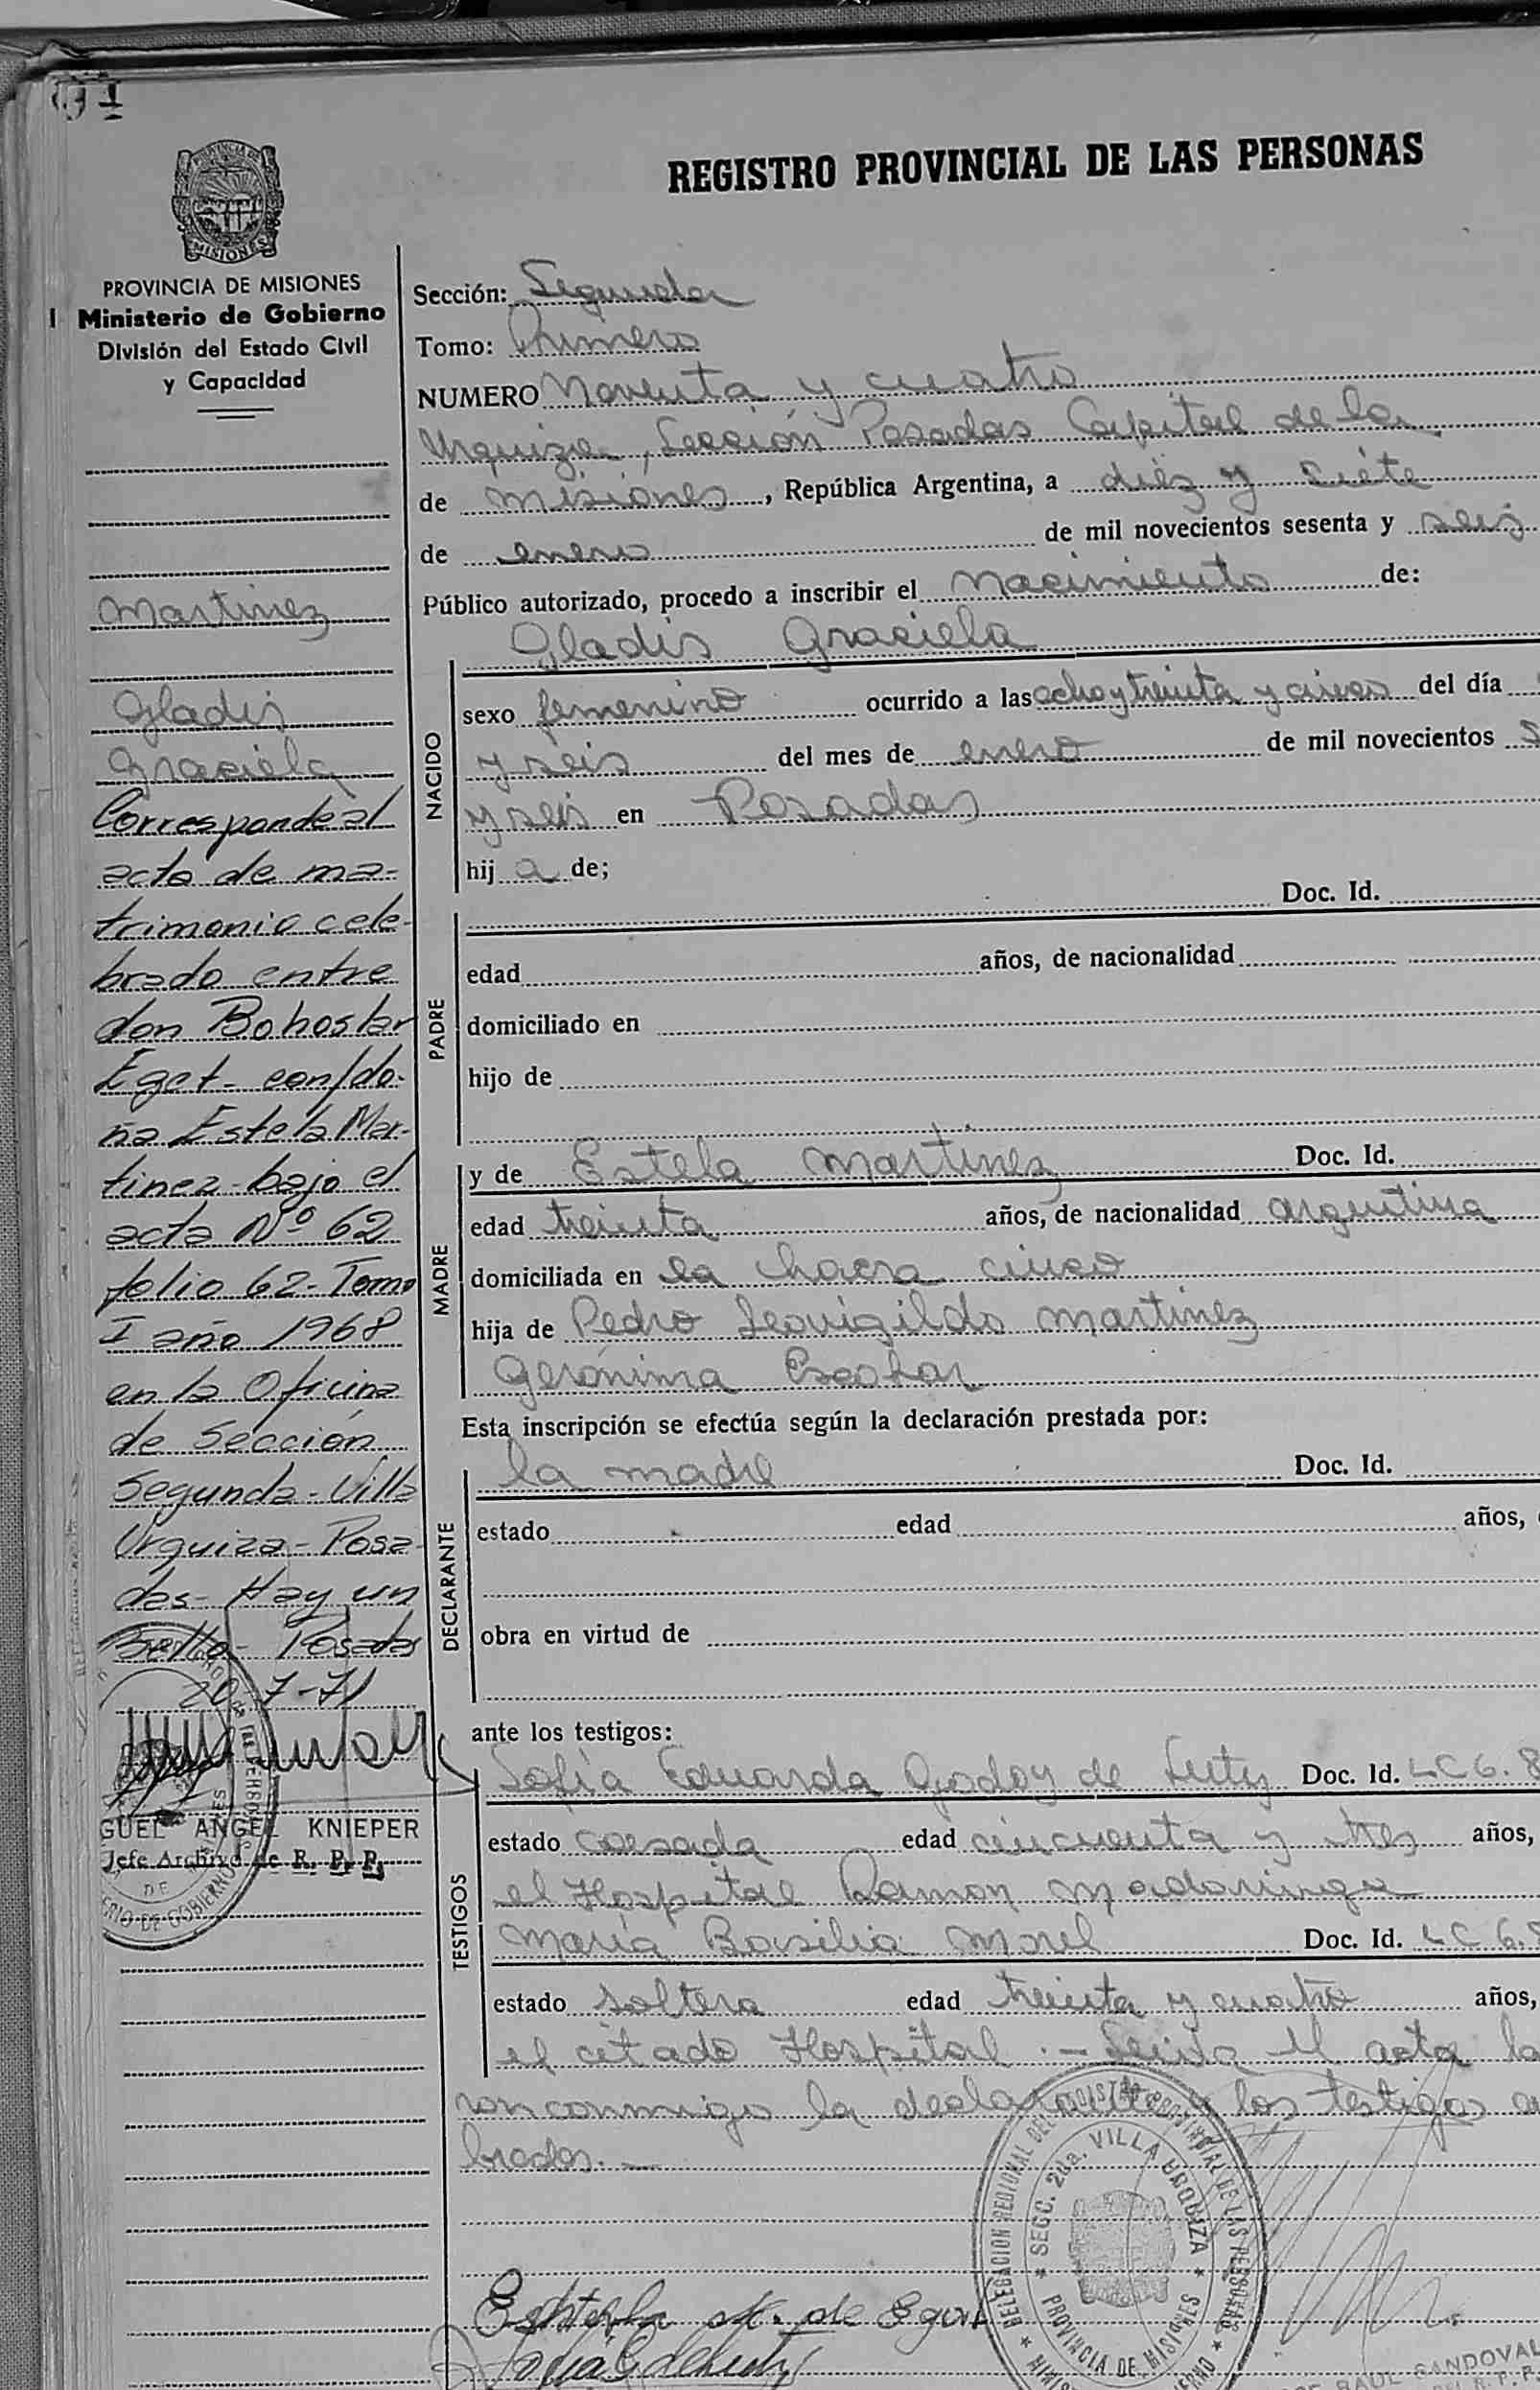 REGISTRO PROVINCIAL DE LAS PERSONAS
MISIONES
PROVINCIA DE MISIONES
Ministerio de Gobierno
División del Estado Civil
y Capacidad
Martinez
Gladis
Graciela
Corresponde al
acta de ma-
trimonio cele-
brado entre
don Bohoslar
Eget - con/do-
ña Estela Mar-
tinez - bajo el
acta Nº 62
folio 62 - Tomo
I año 1968
en la Oficina
de Sección
Segunda - Villa
Urquiza - Posa-
das - Hay un
Sello - Posadas
20-7-71
GUEL ANGEL KNIEPER
Jefe Archivo de R. P. P.
Sección: Segunda
Tomo: Primero
NUMERO Noventa y cuatro
Urquiza, Sección Posadas Capital de la
de misiones, República Argentina, a diez y siete
de enero de mil novecientos sesenta y seis
Público autorizado, procedo a inscribir el Nacimiento de:
Gladis Graciela
NACIDO
sexo femenino ocurrido a las ocho y treinta y cinco del día
y seis del mes de enero de mil novecientos s
y seis en Posadas
hij a de;
Doc. Id.
PADRE
edad años, de nacionalidad
domiciliado en
hijo de
MADRE
y de Estela Martinez Doc. Id.
edad treinta años, de nacionalidad argentina
domiciliada en la chacra cinco
hija de Pedro Leovigildo Martinez
Gerónima Escobar
Esta inscripción se efectúa según la declaración prestada por:
DECLARANTE
la madre Doc. Id.
estado edad años,
obra en virtud de
ante los testigos:
TESTIGOS
Sofía Eduarda Godoy de Doc. Id. LC 6.8
estado casada edad cincuenta y tres años,
el Hospital Ramon Madariaga
María Basilia Morel Doc. Id. LC 6.8
estado soltera edad treinta y cuatro años,
el citado Hospital .- Leida el acta la
ron conmigo la declarante y los testigos
brados. —
DELEGACION REGIONAL DEL REGISTRO PROVINCIAL DE LAS PERSONAS
SECC. 2da. VILLA URQUIZA
PROVINCIA DE MISIONES
RAUL SANDOVAL